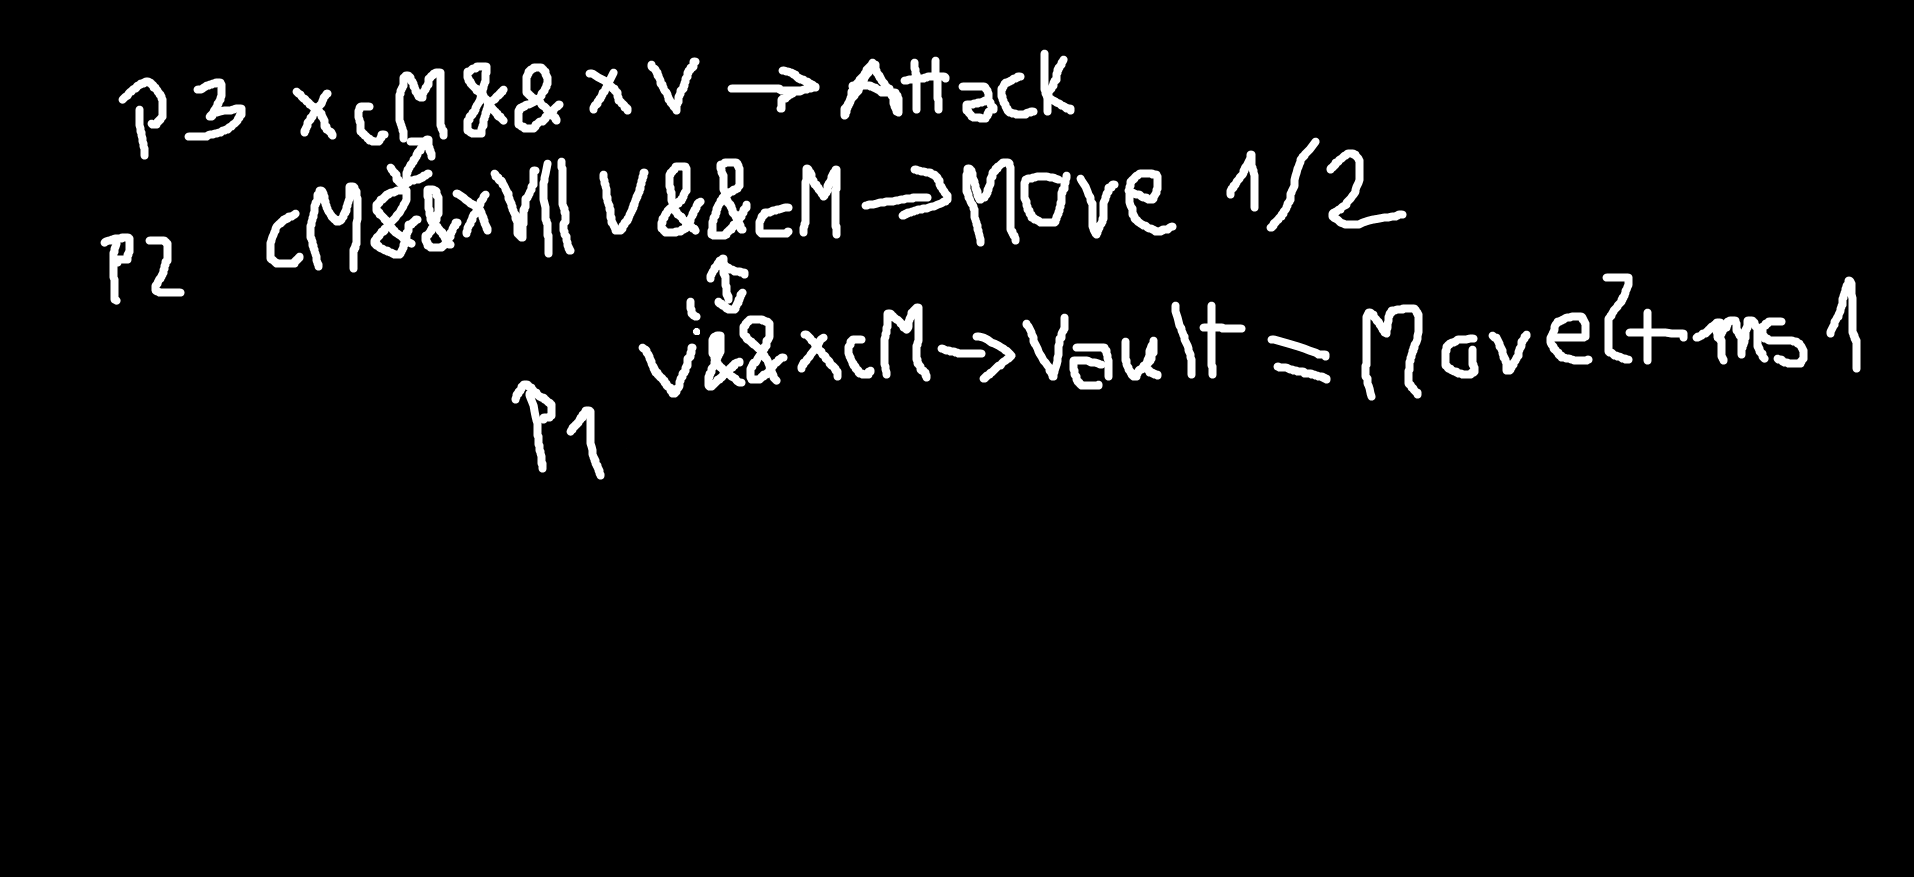 P3 xcM&& xV → Attack
P2 cM&&xV|| V&&cM → Move 1/2
P1 V&&xcM → Vault = Move2+ms1